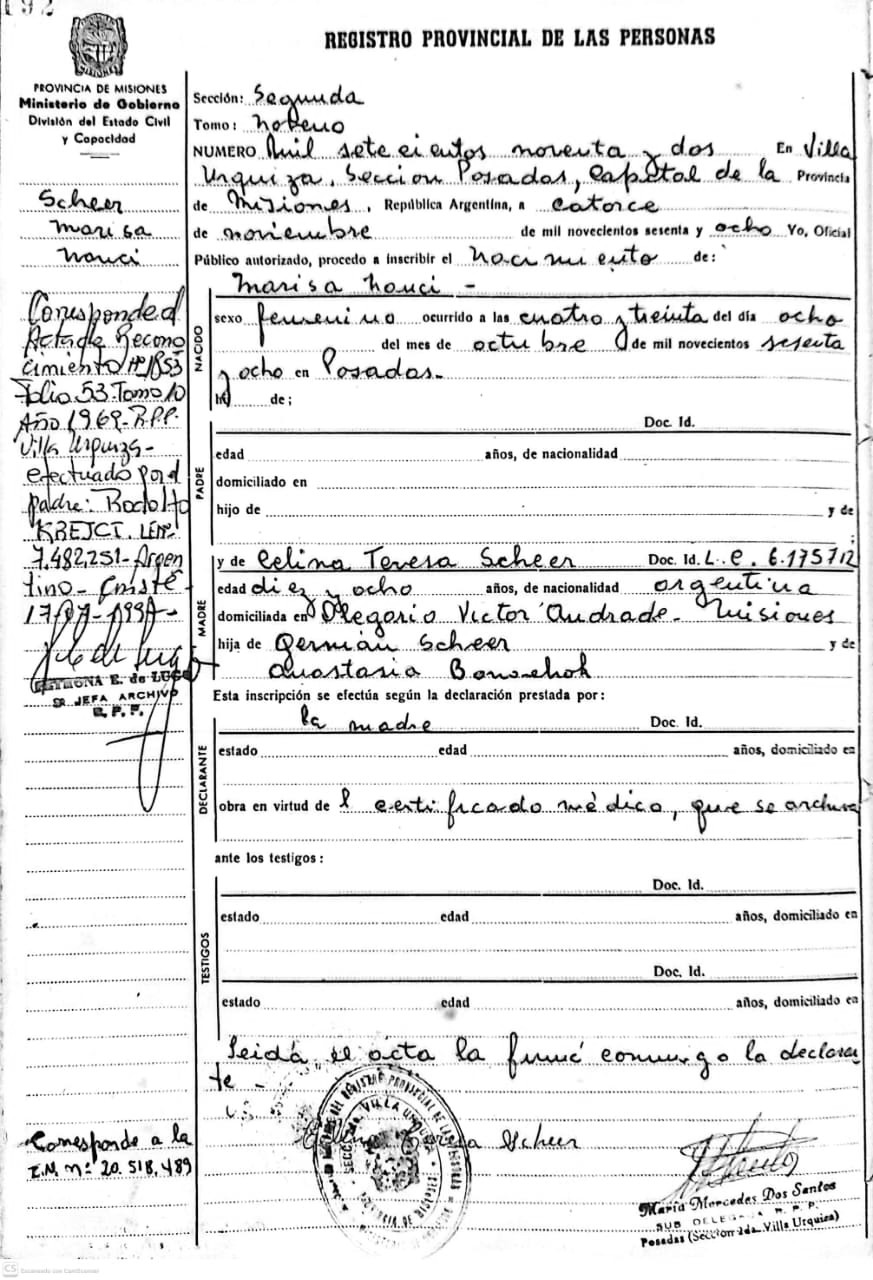 192
REGISTRO PROVINCIAL DE LAS PERSONAS
PROVINCIA DE MISIONES
Ministerio de Gobierno
División del Estado Civil
y Capacidad
Scheer
Marisa
Nouci
Corresponde al
Acta de Recono
cimiento Nº 1853
Folio 53 Tomo 10
Año 1969 - R.P.P.
Villa Urquiza -
efectuado por el
padre: Rodolfo
KREJCI. L.E.Nº
7.482.251 - Argen
tino -
RAMONA E. de LUGO
JEFA ARCHIVO
R. P. P.
Corresponde a la
I.M. nº: 20.518.489
Sección: Segunda
Tomo: Noveno
NUMERO Mil setecientos noventa y dos En Villa
Urquiza, Seccion Posadas, Capital de la Provincia
de Misiones, República Argentina, a catorce
de noviembre de mil novecientos sesenta y ocho Yo, Oficial
Público autorizado, procedo a inscribir el nacimiento de:
Marisa Nouci -
NACIDO
sexo femenino ocurrido a las cuatro y treinta del día ocho
del mes de octubre de mil novecientos sesenta
y ocho en Posadas.-
h de;
PADRE
Doc. Id.
edad años, de nacionalidad
domiciliado en
hijo de y de
MADRE
y de Celina Teresa Scheer Doc. Id. L.C. 6.175712
edad diez y ocho años, de nacionalidad argentina
domiciliada en Olegario Victor Andrade - Misiones
hija de Germán Scheer y de
Anastasia
Esta inscripción se efectúa según la declaración prestada por:
DECLARANTE
la madre Doc. Id.
estado edad años, domiciliado en
obra en virtud de l certificado médico, que se archiva
ante los testigos:
TESTIGOS
Doc. Id.
estado edad años, domiciliado en
Doc. Id.
estado edad años, domiciliado en
Leida el acta la firmó conmigo la declaran
te -
Celina Teresa Scheer
María Mercedes Dos Santos
SUB DELEGADA R. P. P.
Posadas (Sección 2da. Villa Urquiza)
CS Escaneado con CamScanner